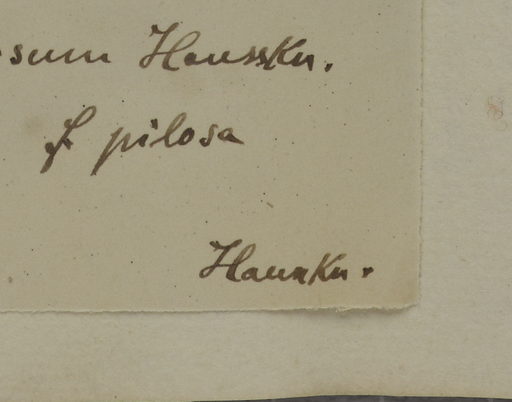 sum Hausskn.
f. pilosa
Hausskn.